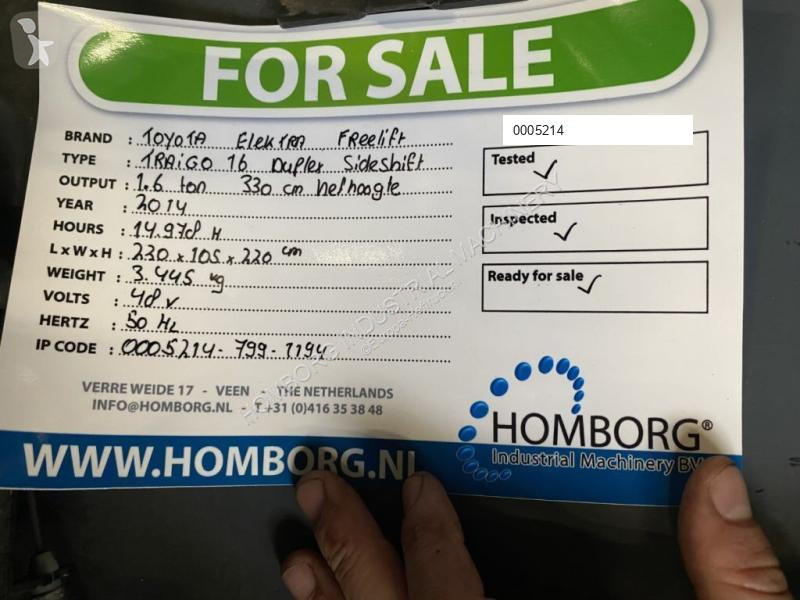 FOR SALE
0005214
BRAND : TOYOTA Elektra Freelift
TYPE : TRAIGO 16 Duplex Sideshift
OUTPUT : 1.6 ton 330 cm hefhoogte
YEAR : 2014
HOURS : 14.978 H
L x W x H : 230 x 105 x 220 cm
WEIGHT : 3.445 kg
VOLTS : 48 v
HERTZ : 50 Hz
IP CODE : 0005214-799-1194
Tested ✓
Inspected ✓
Ready for sale ✓
VERRE WEIDE 17 - VEEN - THE NETHERLANDS
INFO@HOMBORG.NL - T +31 (0)416 35 38 48
HOMBORG®
Industrial Machinery BV
WWW.HOMBORG.NL
HOMBORG INDUSTRIAL MACHINERY